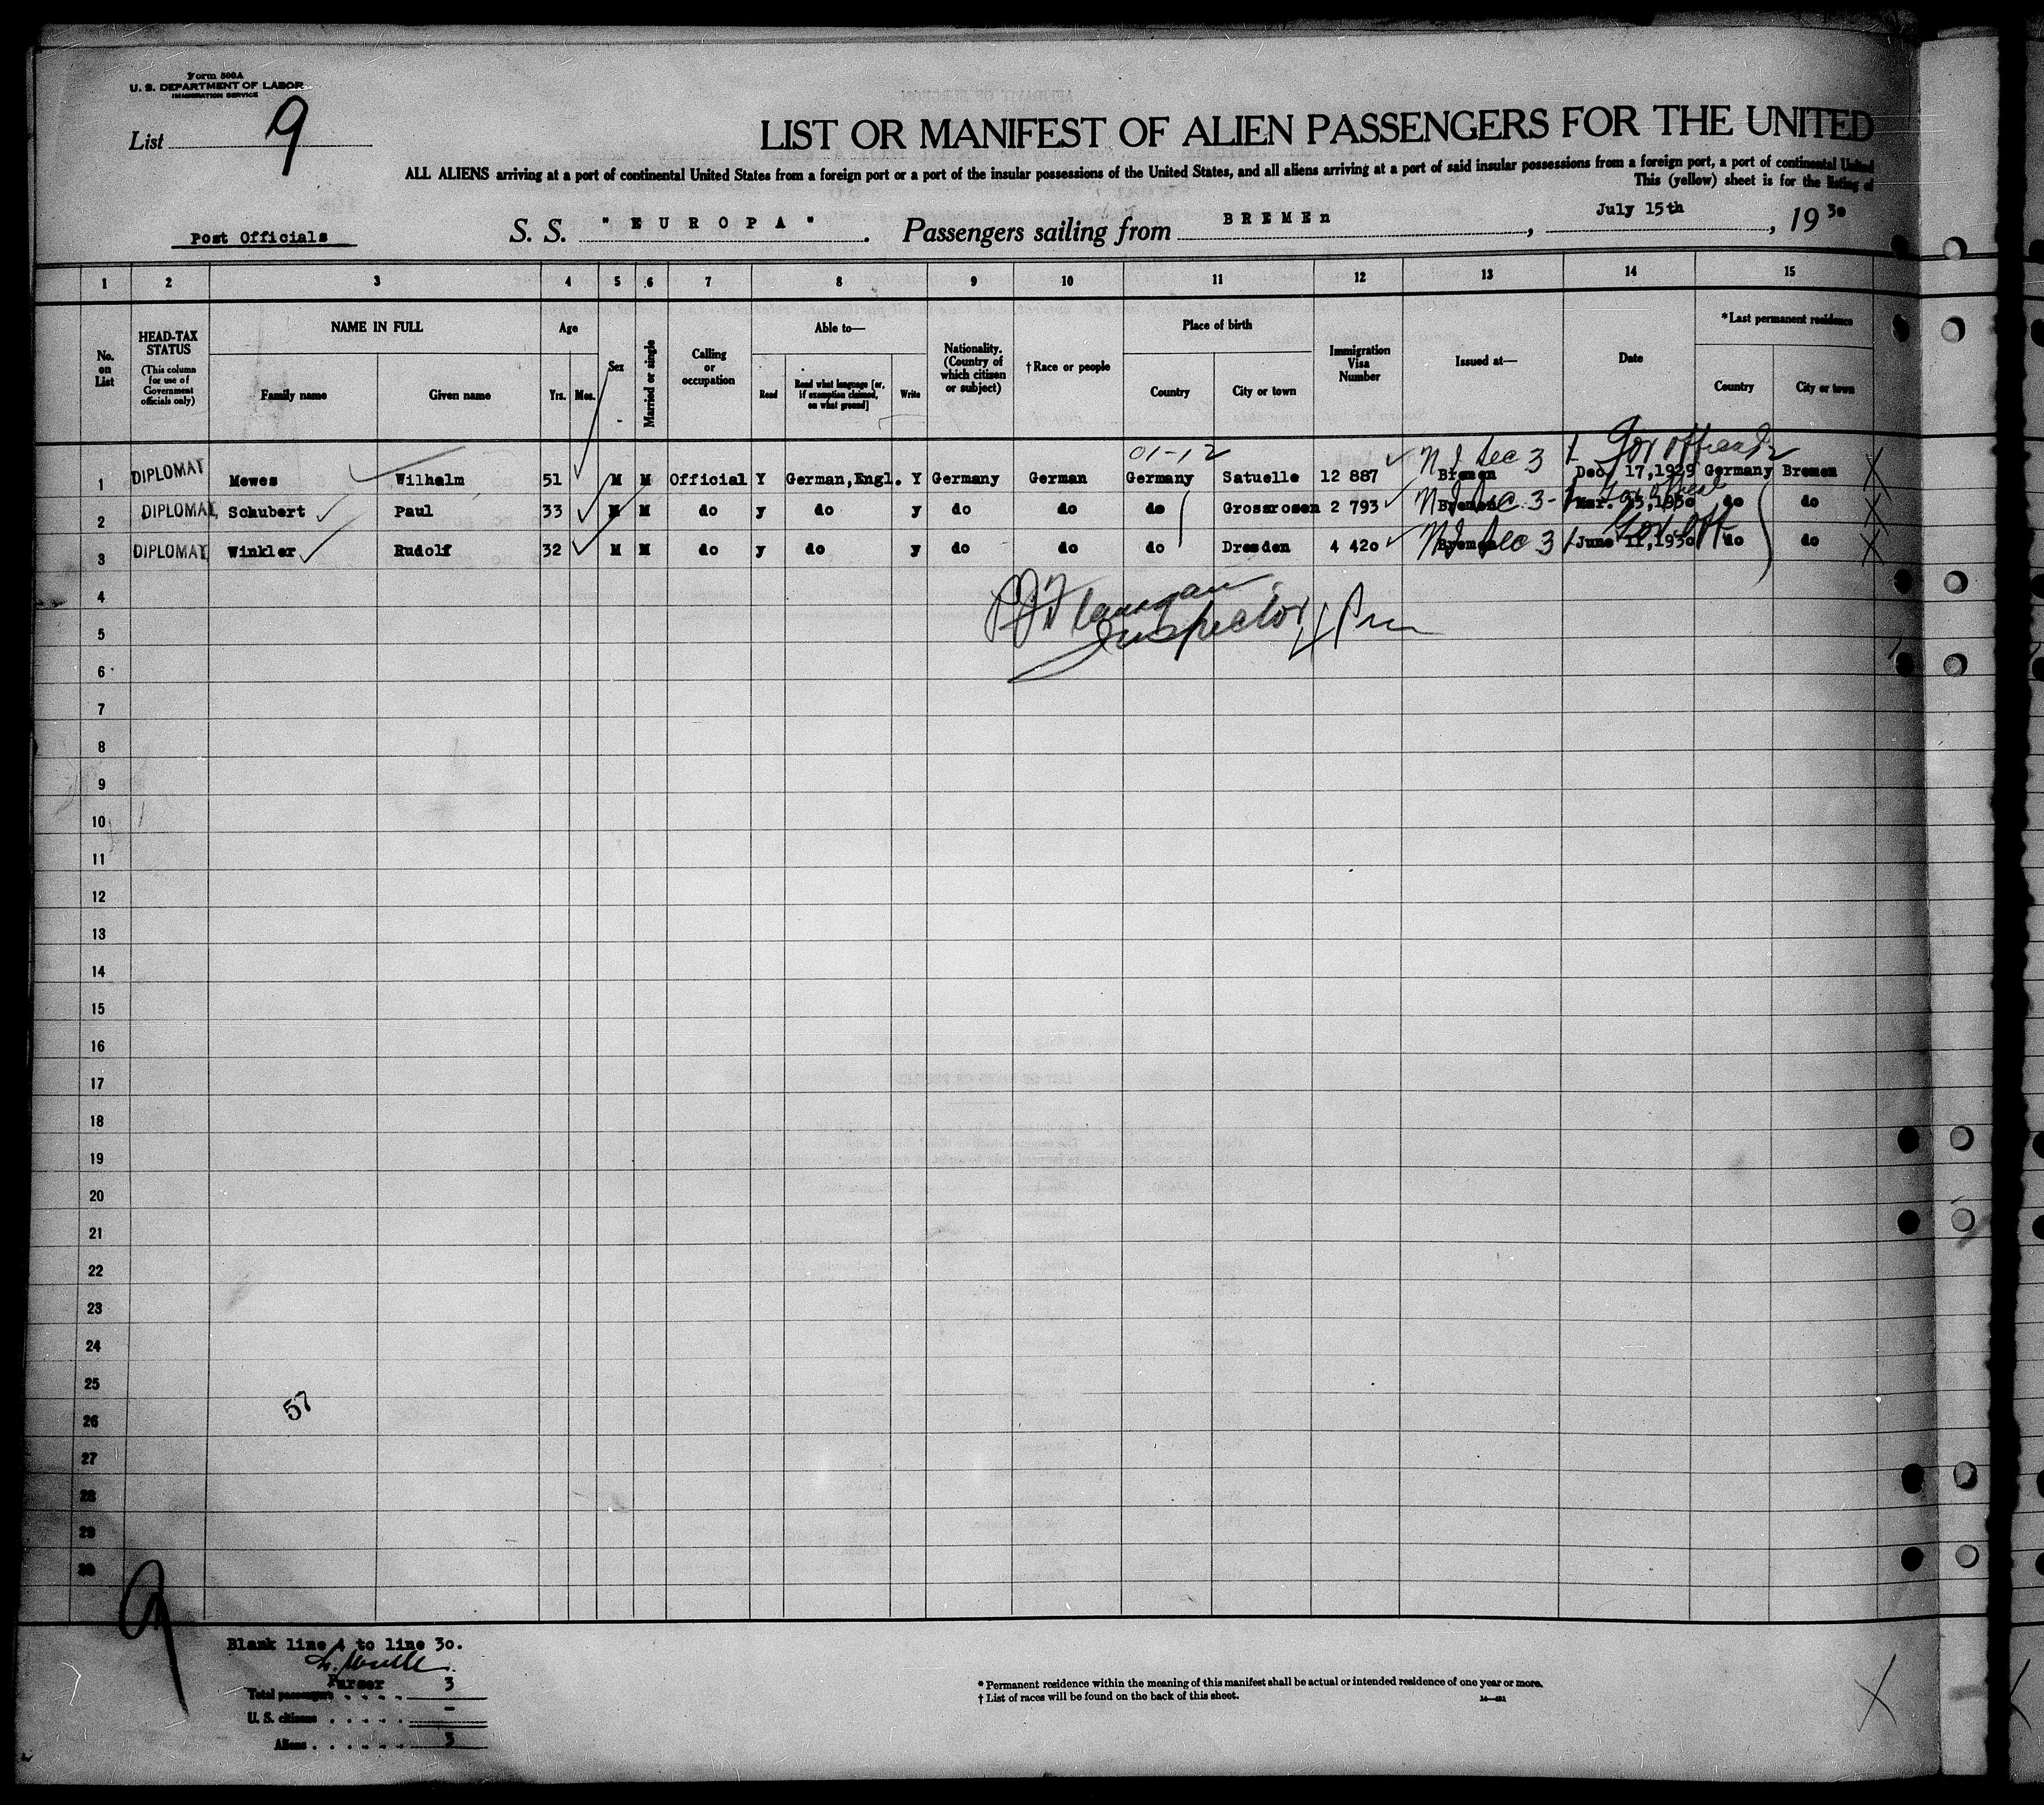 Form 500A
U. S. DEPARTMENT OF LABOR
IMMIGRATION SERVICE
List 9
LIST OR MANIFEST OF ALIEN PASSENGERS FOR THE UNITED
ALL ALIENS arriving at a port of continental United States from a foreign port or a port of the insular possessions of the United States, and all aliens arriving at a port of said insular possessions from a foreign port, a port of continental United
This (yellow) sheet is for the listing of
Post Officials S. S. "EUROPA". Passengers sailing from BREMEn, July 15th, 1930
1 2 3 4 5 6 7 8 9 10 11 12 13 14 15
No. on List
HEAD-TAX STATUS (This column for use of Government officials only)
NAME IN FULL
Family name Given name
Age
Yrs. Mos.
Sex
Married or single
Calling or occupation
Able to—
Read Read what language [or, if exemption claimed, on what ground] Write
Nationality. (Country of which citizen or subject)
†Race or people
Place of birth
Country City or town
Immigration Visa Number
Issued at—
Date
*Last permanent residence
Country City or town
01-12
1 DIPLOMAT Mewes Wilhelm 51 M M Official Y German,Engl. Y Germany German Germany Satuelle 12 887 Bremen Dec. 17,1929 Germany Bremen X
2 DIPLOMAT Schubert Paul 33 M M do y do y do do do Grossrosen 2 793 Bremen Mar. 1930 do do X
3 DIPLOMAT Winkler Rudolf 32 M M do y do y do do do Dresden 4 420 Bremen June 11,1930 do do X
4
5 Inspector
6
7
8
9
10
11
12
13
14
15
16
17
18
19
20
21
22
23
24
25
57
26
27
28
29
30
9
Blank line 4 to line 30.
Purser
Total passengers . . . . 3
U. S. citizens . . . . . -
Aliens . . . . . . 3
* Permanent residence within the meaning of this manifest shall be actual or intended residence of one year or more.
† List of races will be found on the back of this sheet.
X